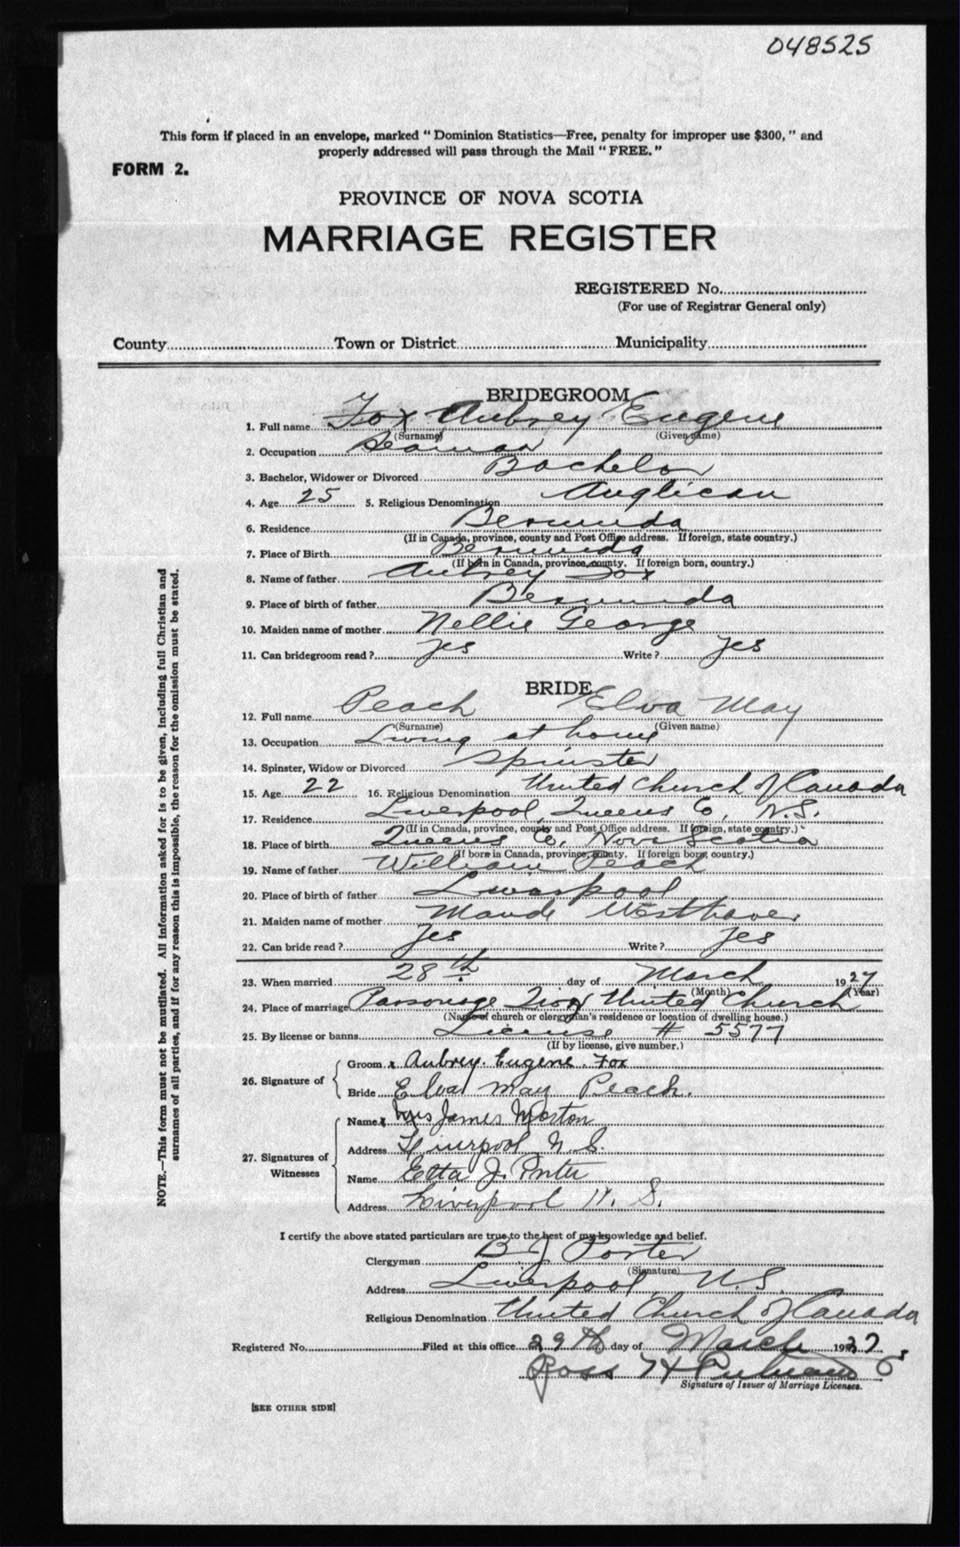 048525
This form if placed in an envelope, marked "Dominion Statistics—Free, penalty for improper use $300," and
properly addressed will pass through the Mail "FREE."
FORM 2.
PROVINCE OF NOVA SCOTIA
MARRIAGE REGISTER
REGISTERED No.
(For use of Registrar General only)
County Town or District Municipality
BRIDEGROOM
1. Full name Fox Aubrey Eugene
(Surname) (Given name)
2. Occupation Seaman
3. Bachelor, Widower or Divorced Bachelor
4. Age 25 5. Religious Denomination Anglican
6. Residence Bermuda
(If in Canada, province, county and Post Office address. If foreign, state country.)
7. Place of Birth Bermuda
(If born in Canada, province, county. If foreign born, country.)
8. Name of father Aubrey Fox
9. Place of birth of father Bermuda
10. Maiden name of mother Nellie George
11. Can bridegroom read? Yes Write? Yes
BRIDE
12. Full name Peach Elva May
(Surname) (Given name)
13. Occupation Living at home
14. Spinster, Widow or Divorced Spinster
15. Age 22 16. Religious Denomination United Church of Canada
17. Residence Liverpool, Queens Co, N.S.
(If in Canada, province, county and Post Office address. If foreign, state country.)
18. Place of birth Queens Co, Nova Scotia
(If born in Canada, province, county. If foreign born, country.)
19. Name of father William Peach
20. Place of birth of father Liverpool
21. Maiden name of mother Maude Westhaver
22. Can bride read? Yes Write? Yes
23. When married 28th day of March 1927
(Month) (Year)
24. Place of marriage Parsonage Zion United Church
(Name of church or clergyman's residence or location of dwelling house.)
25. By license or banns License # 5577
(If by license, give number.)
26. Signature of
Groom x Aubrey Eugene Fox
Bride Elva May Peach.
27. Signatures of Witnesses
Name x Mrs James Morton
Address Liverpool N.S.
Name Etta J. Porter
Address Liverpool N.S.
I certify the above stated particulars are true to the best of my knowledge and belief.
Clergyman B J Porter
(Signature)
Address Liverpool, N.S.
Religious Denomination United Church of Canada
Registered No. Filed at this office 29th day of March 1927
Ross H
Signature of Issuer of Marriage Licenses.
[SEE OTHER SIDE]
NOTE.—This form must not be mutilated. All information asked for is to be given, including full Christian and
surnames of all parties, and if for any reason this is impossible, the reason for the omission must be stated.